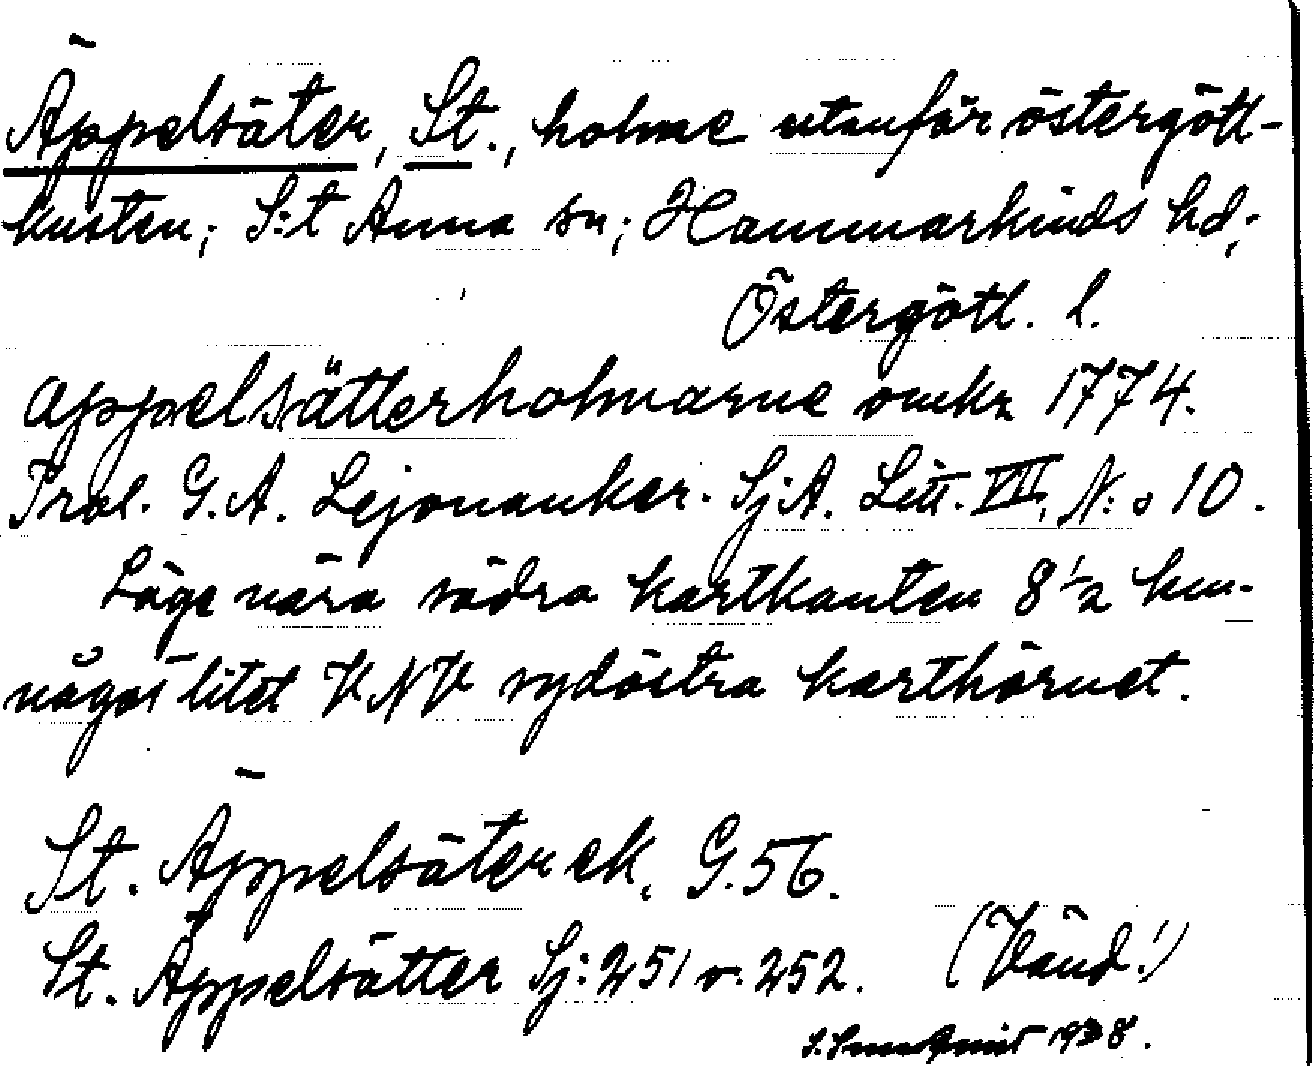 Äppelsäter, St., holme utanför östergötl-
kusten; S:t Anna sn; Hammarkinds hd;
Östergötl. l.
appelsätterholmarne omkr 1774.
Prol. G. A. Lejonanker. Sj.A. Litt. VII, N:o 10.
Läge nära södra kartkanten 8 1/2 km.
något litet VNV sydöstra karthörnet.
St. Äppelsäter ek. G. 56.
St. Äppelsätter Sj: 251 o. 252. (Vänd!)
1938.